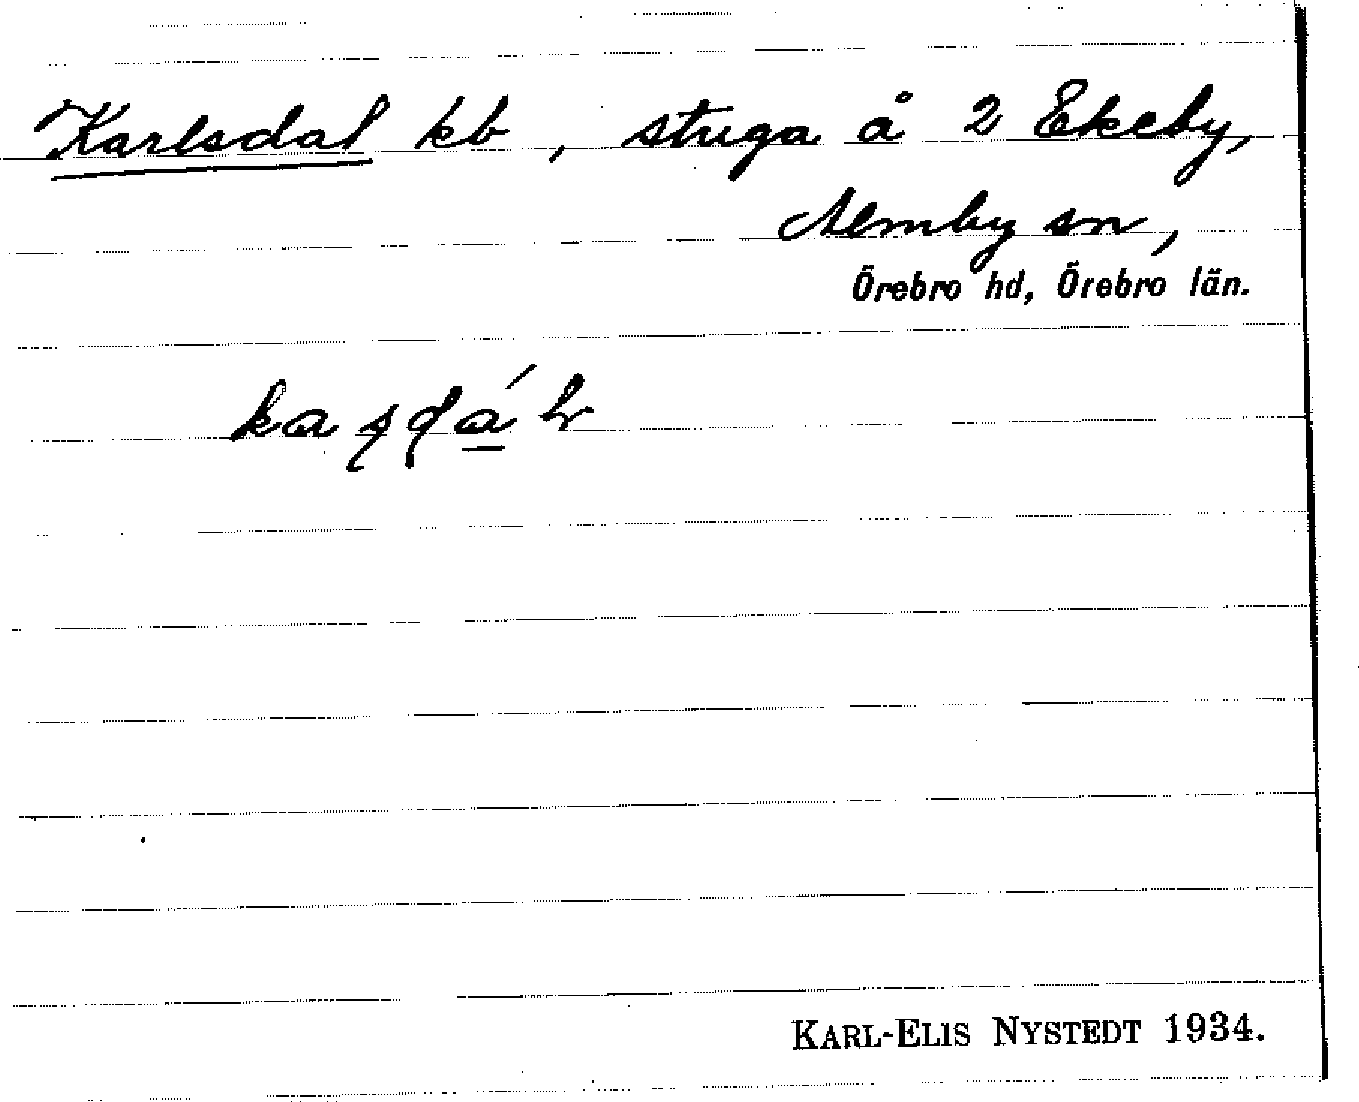 Karlsdal kb, stuga å 2 Ekeby,
Almby sn,
Örebro hd, Örebro län.
KARL-ELIS NYSTEDT 1934.